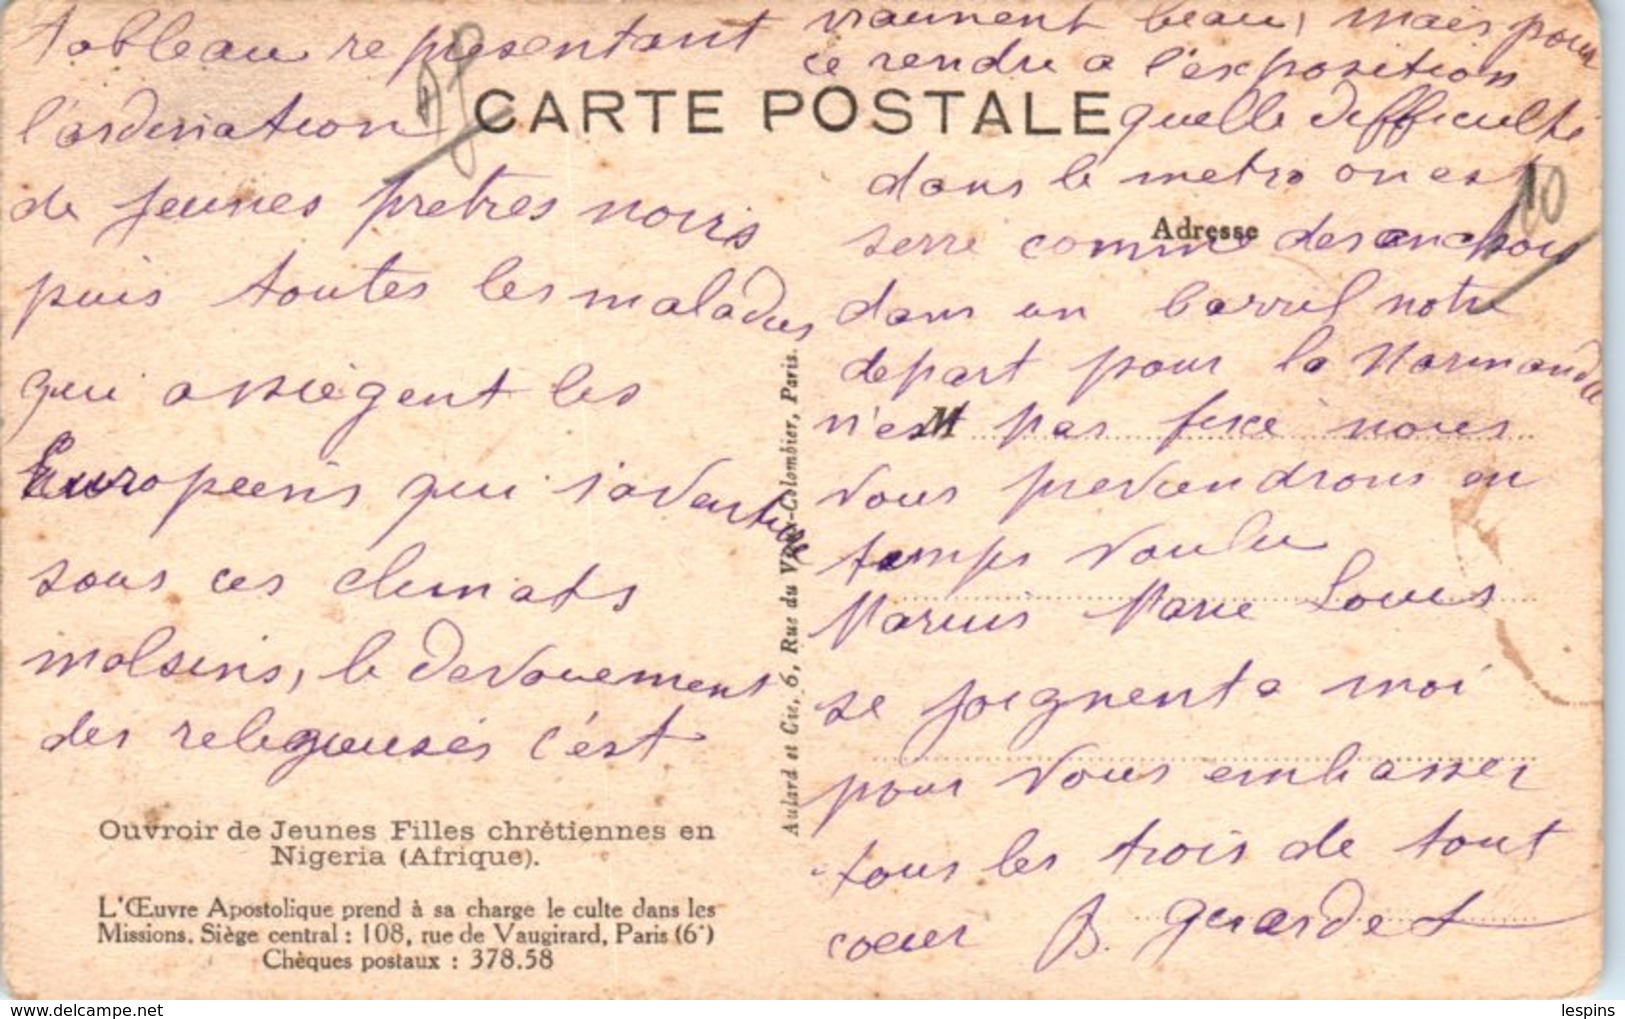 tableau representant
l'ordination
de jeunes pretres noirs
puis toutes les maladies
qui assiègent les
Européens qui s'aventure
sous ces climats
malsins, le devouement
des religieuses c'est
vraiment beau, mais pour
ce rendre a l'exposition
quelle difficulté
dans le metro on est
serré comme des anchois
dans un barril notre
depart pour la Normandie
n'est pas fixé nous
vous previendrons en
temps voulu
Marius Marie Louis
se joignent a moi
pour vous embrasser
tous les trois de tout
coeur B. Gerardet
CARTE POSTALE
Adresse
M
10
Aulard et Cie, 6, Rue du Vieux-Colombier, Paris.
Ouvroir de Jeunes Filles chrétiennes en
Nigeria (Afrique).
L'Œuvre Apostolique prend à sa charge le culte dans les
Missions. Siège central : 108, rue de Vaugirard, Paris (6e)
Chèques postaux : 378.58
www.delcampe.net
lespins